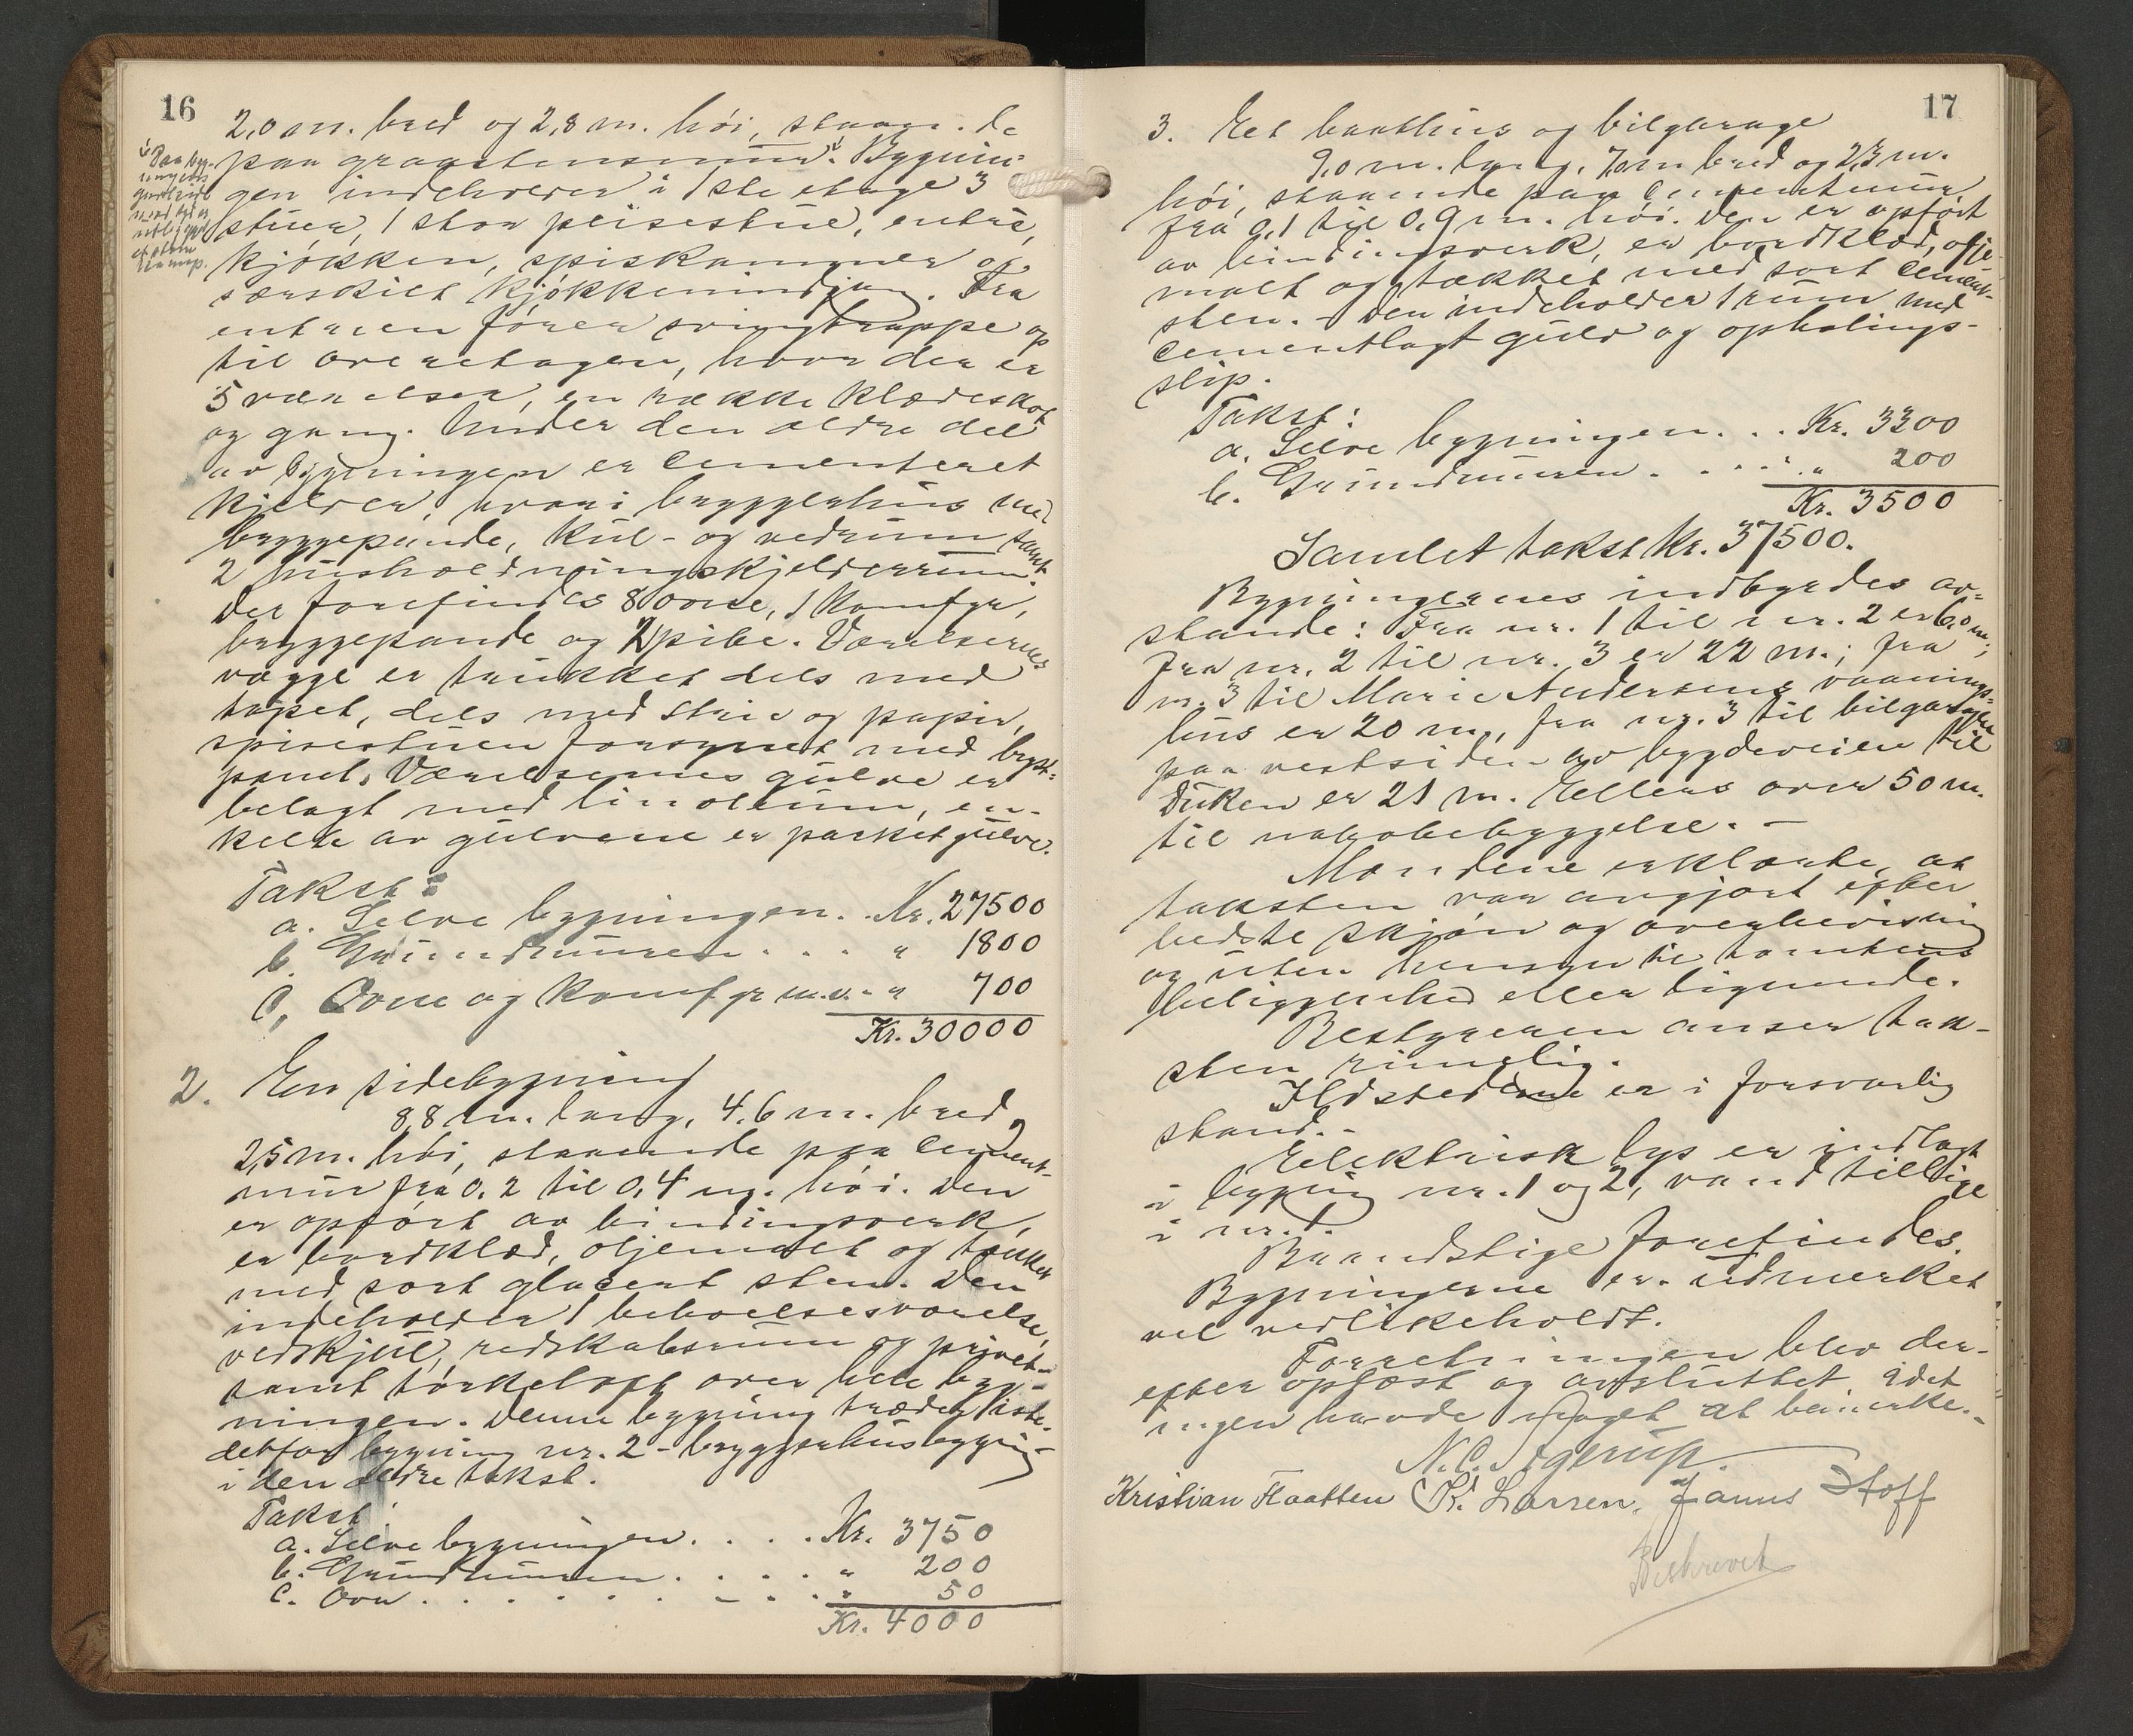 16
2,0 m. bred og 2,8 m. høi, staaende
paa graastensmur. Bygnin-
gen indeholder i 1ste etage 3
stuer, 1 stor peisestue, entré,
kjøkken, spiskammer og
særskilt kjøkkenindgang. Fra
entreen fører svingtrappe op
til overetagen, hvor der er
5 værelser, en række klædeskot
og gang. Under den ældre del
av bygningen er cementeret
kjelder, hvori bryggerhus med
bryggepande, kul- og vedrum samt
2 husholdningskjelderrum.
Der forefindes 8 ovne, 1 komfyr,
bryggepande og 2 pibe. Værelsernes
vægge er trukket dels med
tapet, dels med strie og papir,
spisestuen forsynet med bryst-
panel. Værelsernes gulve er
belagt med linoleum, en-
kelte av gulvene er parketgulve.
Takst:
a. Selve bygningen. . Kr. 27500
b. Grundmuren . . . " 1800
c. Ovne og komfyr m.v. - " 700
Kr. 30000
2. En sidebygning
8,8 m. lang, 4,6 m. bred,
2,5 m. høi, staaende paa cement-
mur fra 0,2 til 0,4 m. høi. Den
er opført av bindingsverk,
er bordklæd, oljemalt og tækket
med sort glacert sten. Den
indeholder 1 beboelsesværelse,
vedskjul, redskabsrum og privet
samt tørkeloft over hele byg-
ningen. Denne bygning træder iste-
detfor bygning nr. 2 - bryggerhusbygning
i den ældre takst.
Takst:
a. Selve bygningen. . . . Kr. 3750
b. Grundmuren . . . . " 200
c. Ovn . . . . . . . " 50
Kr. 4000
17
3. Et baathus og bilgarage
9,0 m. lang, 7,0 m bred og 2,3 m.
høi, staaende paa cementmur
fra 0,1 til 0,9 m. høi. Den er opført
av bindingsverk, er bordklæd, olje-
malt og tækket med sort cement-
sten. - Den indeholder 1 rum med
cementlagt gulv og ophalings-
slip.
Takst:
a. Selve bygningen. . . Kr. 3300
b. Grundmuren . . . . " 200
Kr. 3500
Samlet takst Kr. 37500.
Bygningernes indbyrdes av-
stande: Fra nr. 1 til nr. 2 er 6,0 m;
fra nr. 2 til nr. 3 er 22 m.; fra
nr. 3 til Marie Andersens vaanings-
hus er 20 m, fra nr. 3 til bilgarage
paa vestsiden av bygdeveien til
Duken er 21 m. Ellers over 50 m.
til nabobebyggelse. -
Mændene erklærte, at
taksten var avgjort efter
bedste skjøn og overbevisning
og uten hensyn til tomtens
beliggenhed eller lignende.
Bestyreren anser tak-
sten rimelig.
Ildstedene er i forsvarlig
stand. -
Elektrisk lys er indlagt
i bygning nr. 1 og 2, vand tillige
i nr. 1.
Brandstige forefindes.
Bygningerne er udmerket
vel vedlikeholdt.
Forretningen blev der-
efter oplæst og avsluttet, idet
ingen havde noget at bemerke. -
N. C.
Kristian Flaatten K. Larsen. Janus Stoff
Beskrevet